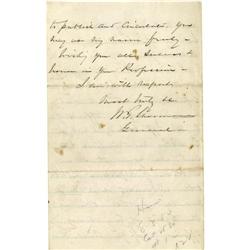 to publish and circulate. You
may use my name freely -
Wish you all success &
honor in your Profession -
I am with respect
Most truly &c
W. T. Sherman
General